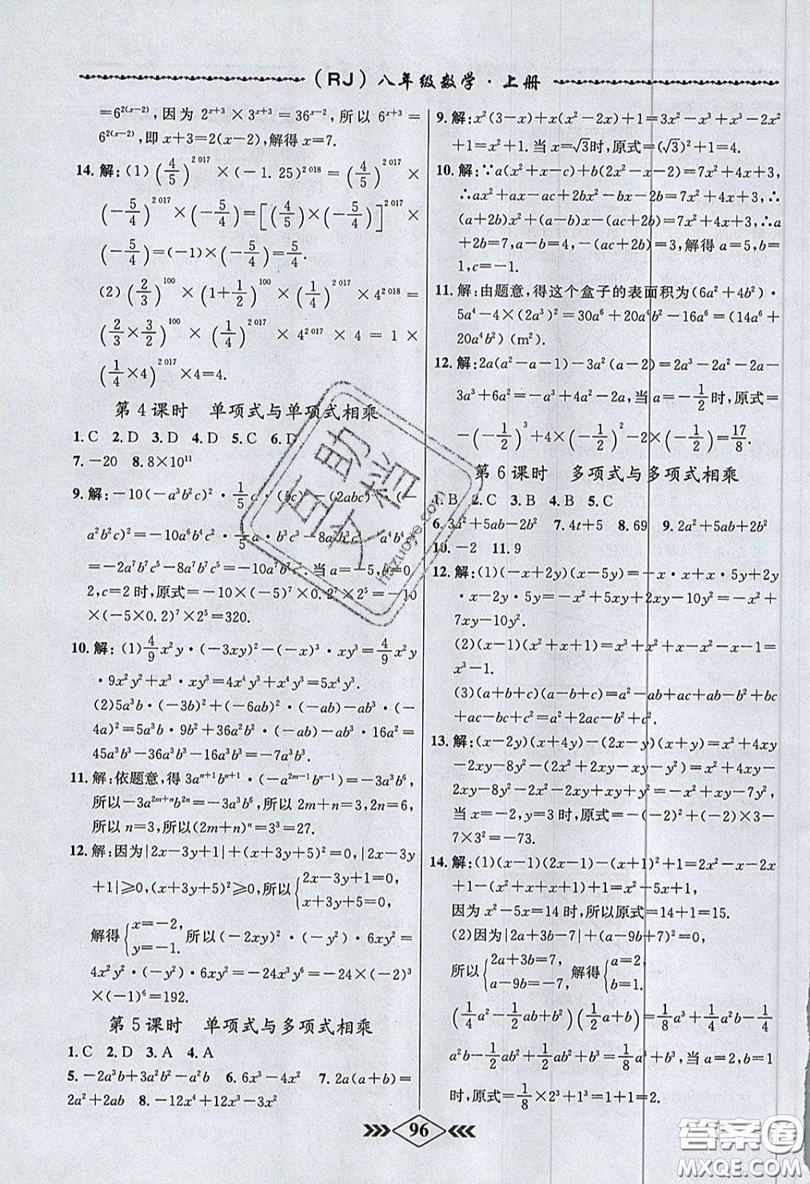 （RJ）八年级数学·上册
=6^{2(x-2)}，因为 2^{x+3}×3^{x+3}=36^{x-2}，所以 6^{x+3}=
6^{2(x-2)}，即 x+3=2(x-2)，解得 x=7.
14. 解：(1)(4/5)^{2 017}×(-1.25)^{2 018}=(4/5)^{2 017}×
(-5/4)^{2 017}×(-5/4)=[(4/5)×(-5/4)]^{2 017}×
(-5/4)=(-1)×(-5/4)=5/4.
(2)(2/3)^{100}×(1+1/2)^{100}×(1/4)^{2 017}×4^{2 018}=
(2/3×3/2)^{100}×(1/4)^{2 017}×4^{2 017}×4=1×
(1/4×4)^{2 017}×4=4.
第4课时 单项式与单项式相乘
1. C 2. D 3. D 4. D 5. C 6. D
7. -20 8. 8×10¹¹
9. 解：-10(-a³b²c)²·1/5a·(bc)³-(2abc)³·(-
a²b²c)²=-10a⁶b⁴c²·1/5a·b³c³-8a³b³c³·a⁴b⁴c²
=-2a⁷b⁷c⁵-8a⁷b⁷c⁵=-10a⁷b⁷c⁵. 当 a=-5，b=0.2，
c=2时，原式=-10×(-5)⁷×0.2⁷×2⁵=-10×
(-5×0.2)⁷×2⁵=320.
10. 解：(1)4/9x²y·(-3xy)²-(-x)³·xy³=4/9x²y
·9x²y²+x³·xy³=4x⁴y³+x⁴y³=5x⁴y³.
(2)5a³b·(-3b)²+(-6ab)²·(-ab)-ab³·(-
4a)²=5a³b·9b²+36a²b²·(-ab)-ab³·16a²=
45a³b³-36a³b³-16a³b³=-7a³b³.
11. 解：依题意，得 3a^{n+1}b^{n+1}·(-a^{2m-1}b^{n-1})=-3a³b⁶，
所以-3a^{2m+n}b^{2n}=-3a³b⁶，所以 2m+n=3，2n=6，
所以 n=3，所以(2m+n)ⁿ=3³=27.
12. 解：因为|2x-3y+1|+(x+3y+5)²=0，|2x-3y
+1|≥0，(x+3y+5)²≥0，所以{2x-3y+1=0，
x+3y+5=0，
解得{x=-2，y=-1. 所以(-2xy)²·(-y²)·6xy²=
4x²y²·(-y²)·6xy²=-24x³y⁶=-24×(-2)³
×(-1)⁶=192.
第5课时 单项式与多项式相乘
1. C 2. D 3. A 4. A
5. -2a³b+3a²b²-a²b 6. 6x³-4x² 7. 2a(a+b)=
2a²+2ab 8. -12x⁴+12x³-3x²
9. 解：x²(3-x)+x(x²-2x)+1=3x²-x³+x³-2x²
+1=x²+1. 当 x=√3时，原式=(√3)²+1=4.
10. 解：∵a(x²+x-c)+b(2x²-x-2)=7x²+4x+3，
∴ax²+ax-ac+2bx²-bx-2b=7x²+4x+3，∴
(a+2b)x²+(a-b)x-(ac+2b)=7x²+4x+3，∴a
+2b=7，a-b=4，-(ac+2b)=3，解得 a=5，b=
1，c=-1.
11. 解：由题意，得这个盒子的表面积为(6a²+4b²)·
5a⁴-4×(2a³)²=30a⁶+20a⁴b²-16a⁶=(14a⁶+
20a⁴b²)(m²).
12. 解：2a(a²-a-1)-3a(a²-2)=2a³-2a²-2a-
3a³+6a=-a³-2a²+4a，当 a=-1/2时，原式=
-(-1/2)³+4×(-1/2)²-2×(-1/2)=17/8.
第6课时 多项式与多项式相乘
1. B 2. C 3. B 4. B 5. C
6. 3a²+5ab-2b² 7. 4t+5 8. 69 9. 2a²+5ab+2b²
10. -2 11. 9
12. 解：(1)(-x+2y)(x-5y)=-x·x+x·5y+2y
·x-2y·5y=-x²+5xy+2xy-10y²=-x²+
7xy-10y².
(2)(x-1)(x²+x+1)=x³+x²+x-x²-x-1
=x³-1.
(3)(a+b)(a-b+c)=a²-ab+ac+ab-b²+bc
+ac=a²+2ac-b²+bc.
13. 解：(x-2y)(x+4y)-(2x-y)(x-y)=x²+4xy
-2xy-8y²-(2x²-2xy-xy+y²)=x²+2xy-
8y²-2x²+2xy+xy-y²=-x²+xy-7y²，
当 x=-2，y=3时，原式=-(-2)²+(-2)×3-7
×3²=-73.
14. 解：(1)(x-1)(2x-1)-(x+1)²+1=2x²-x-2x
+1-(x²+x+x+1)+1=x²-5x+1，
因为 x²-5x=14时，所以原式=14+1=15.
(2)因为|2a+3b-7|+(a-9b+7)²=0，
所以{2a+3b=7，a-9b=-7，解得{a=2，b=1.
(1/4a²-1/2ab+b²)(1/2a+b)=1/8a³+1/4a²b-
1/4a²b-1/2ab²+1/2ab²+b³=1/8a³+b³，当 a=2，b=
1时，原式=1/8×2³+1³=2.
96
互助文档
hezuoye.com
答案圈
MXQE.COM